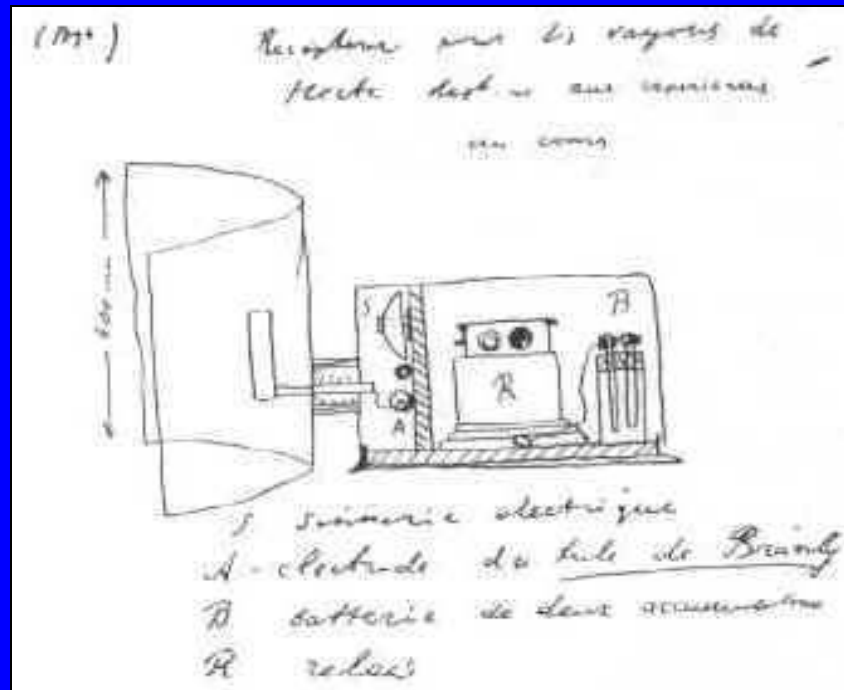 Recepteur pour les rayons de
Hertz aux experiences
au cours
600 mm
S
B
R
A
S sonnerie electrique
A - electrode du tube de Branly
B batterie de deux accumulateurs
R relais